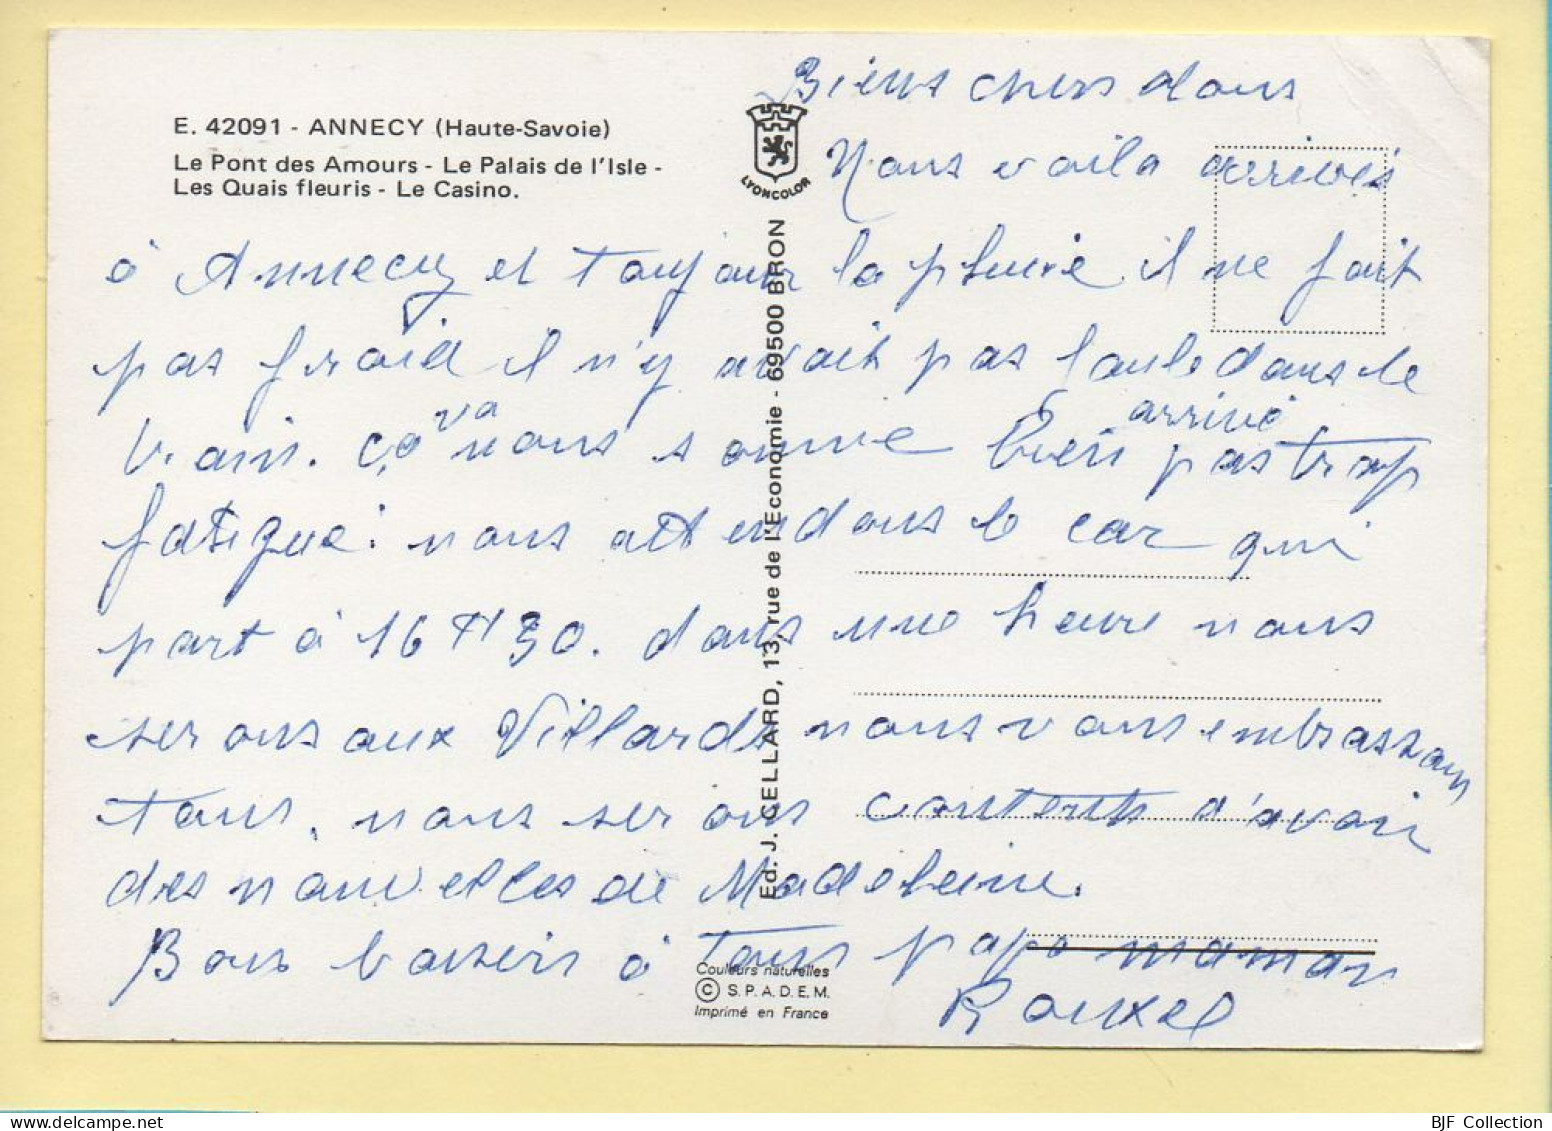 E. 42091 - ANNECY (Haute-Savoie)
Le Pont des Amours - Le Palais de l'Isle -
Les Quais fleuris - Le Casino.
LYONCOLOR
Biens chers tous
Nous voila arrivés
à Annecy et toujour la pluie il ne fait
pas froid il n'y avait pas foule dans le
train. ça va nous somme bien arrivé pas trop
fatigué. nous attendons le car qui
part à 16 H 30. dans une heure nous
serons aux Villards nous vous embrassons
tous. nous serons contents d'avoir
des nouvelles de Madeleine.
Bons baisers à tous papa maman
Rouxel
Ed. J. CELLARD, 13, rue de l'Economie - 69500 BRON
Couleurs naturelles
© S.P.A.D.E.M.
Imprimé en France
BJF Collection